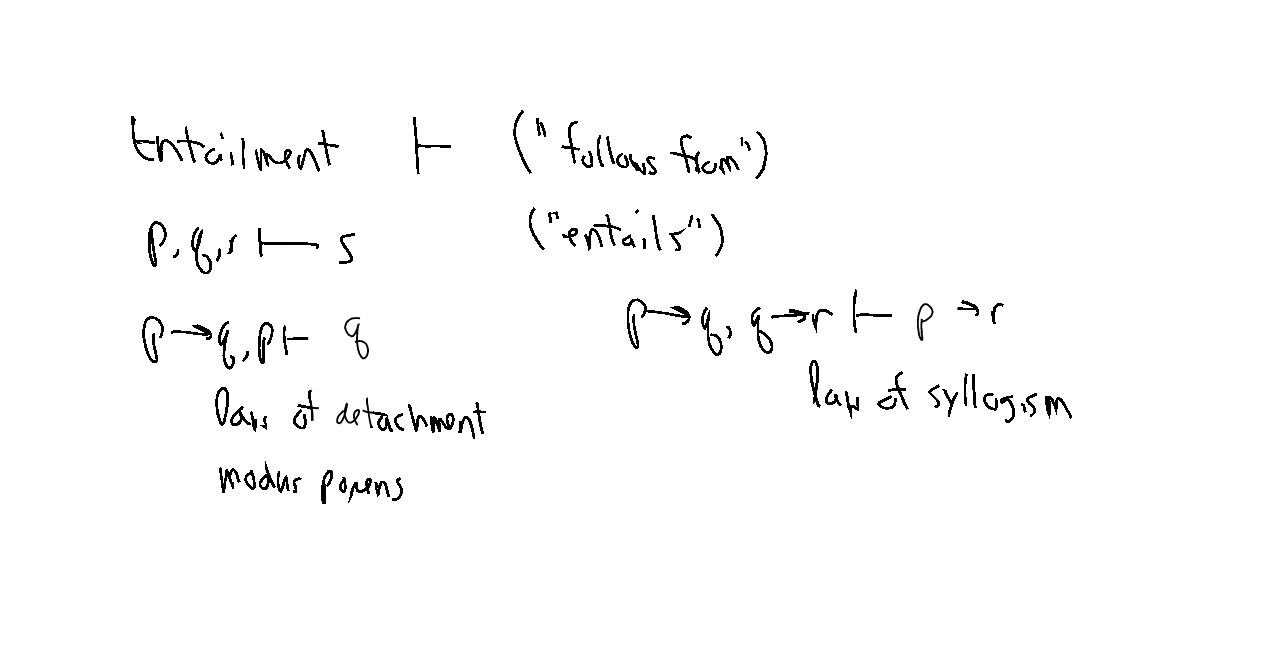 Entailment ⊢ ("follows from")
p, q, r ⊢ s ("entails")
p → q, p ⊢ q
law of detachment
modus ponens
p → q, q → r ⊢ p → r
law of syllogism